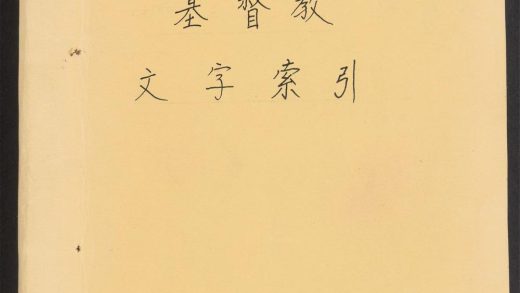 基督教
文字索引